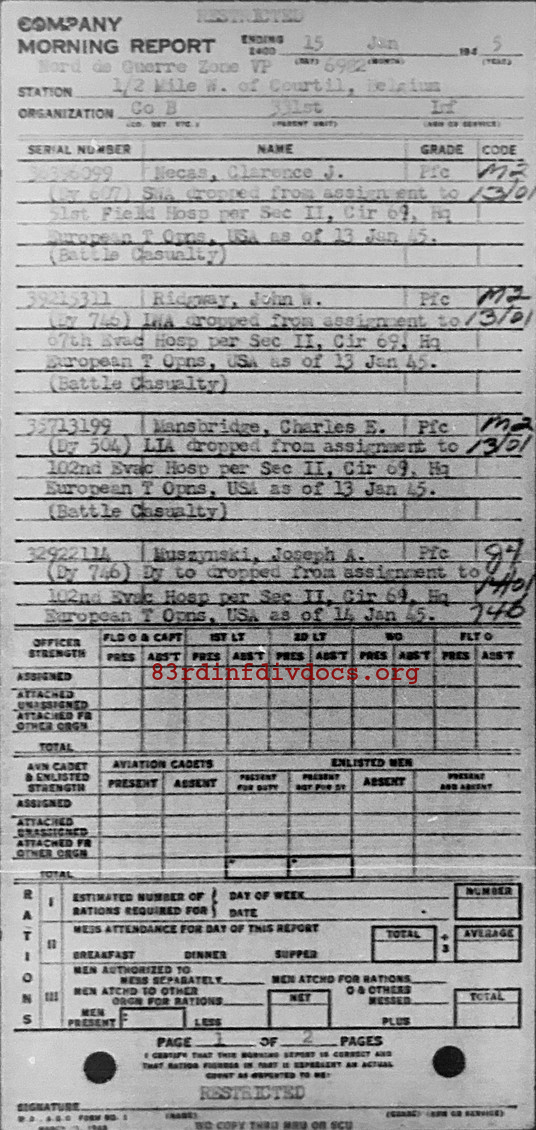 RESTRICTED
COMPANY
MORNING REPORT ENDING 2400 15 Jan 194 5
(DAY) (MONTH) (YEAR)
Nord de Guerre Zone VP 6982
STATION 1/2 Mile W. of Courtil, Belgium
ORGANIZATION Co B 331st Inf
(CO. DET. ETC.) (PARENT UNIT) (ARM OR SERVICE)
SERIAL NUMBER NAME GRADE CODE
36396099 Necas, Clarence J. Pfc M2
(Dy 607) SWA dropped from assignment to 13/01
51st Field Hosp per Sec II, Cir 69, Hq
European T Opns, USA as of 13 Jan 45.
(Battle Casualty)
39215311 Ridgway, John W. Pfc M2
(Dy 746) LWA dropped from assignment to 13/01
67th Evac Hosp per Sec II, Cir 69, Hq
European T Opns, USA as of 13 Jan 45.
(Battle Casualty)
35713199 Mansbridge, Charles E. Pfc M2
(Dy 504) LIA dropped from assignment to 13/01
102nd Evac Hosp per Sec II, Cir 69, Hq
European T Opns, USA as of 13 Jan 45.
(Battle Casualty)
32922114 Muszynski, Joseph A. Pfc
(Dy 746) Dy to dropped from assignment to
102nd Evac Hosp per Sec II, Cir 69, Hq 1401
European T Opns, USA as of 14 Jan 45. 746
OFFICER STRENGTH FLD O & CAPT 1ST LT 2D LT WO FLT O
PRES ABS'T PRES ABS'T PRES ABS'T PRES ABS'T PRES ABS'T
83rdinfdivdocs.org
ASSIGNED
ATTACHED UNASSIGNED
ATTACHED FR OTHER ORGN
TOTAL
AVN CADET & ENLISTED STRENGTH AVIATION CADETS ENLISTED MEN
PRESENT ABSENT PRESENT FOR DUTY PRESENT NOT FOR DY ABSENT PRESENT AND ABSENT
ASSIGNED
ATTACHED UNASSIGNED
ATTACHED FR OTHER ORGN
TOTAL
RATIONS
I ESTIMATED NUMBER OF DAY OF WEEK NUMBER
RATIONS REQUIRED FOR DATE
II MESS ATTENDANCE FOR DAY OF THIS REPORT TOTAL ÷ 3 AVERAGE
BREAKFAST DINNER SUPPER
III MEN AUTHORIZED TO MESS SEPARATELY MEN ATCHD FOR RATIONS
MEN ATCHD TO OTHER ORGN FOR RATIONS NET O & OTHERS MESSED TOTAL
MEN PRESENT LESS PLUS
PAGE 1 OF 2 PAGES
I CERTIFY THAT THIS MORNING REPORT IS CORRECT AND
THAT RATION FIGURES IN PART III REPRESENT AN ACTUAL
COUNT AS REPORTED TO ME:
RESTRICTED
SIGNATURE
(NAME) (GRADE) (ARM OR SERVICE)
W.D., A.G.O. FORM NO. 1
NO COPY THRU MRU OR SCU